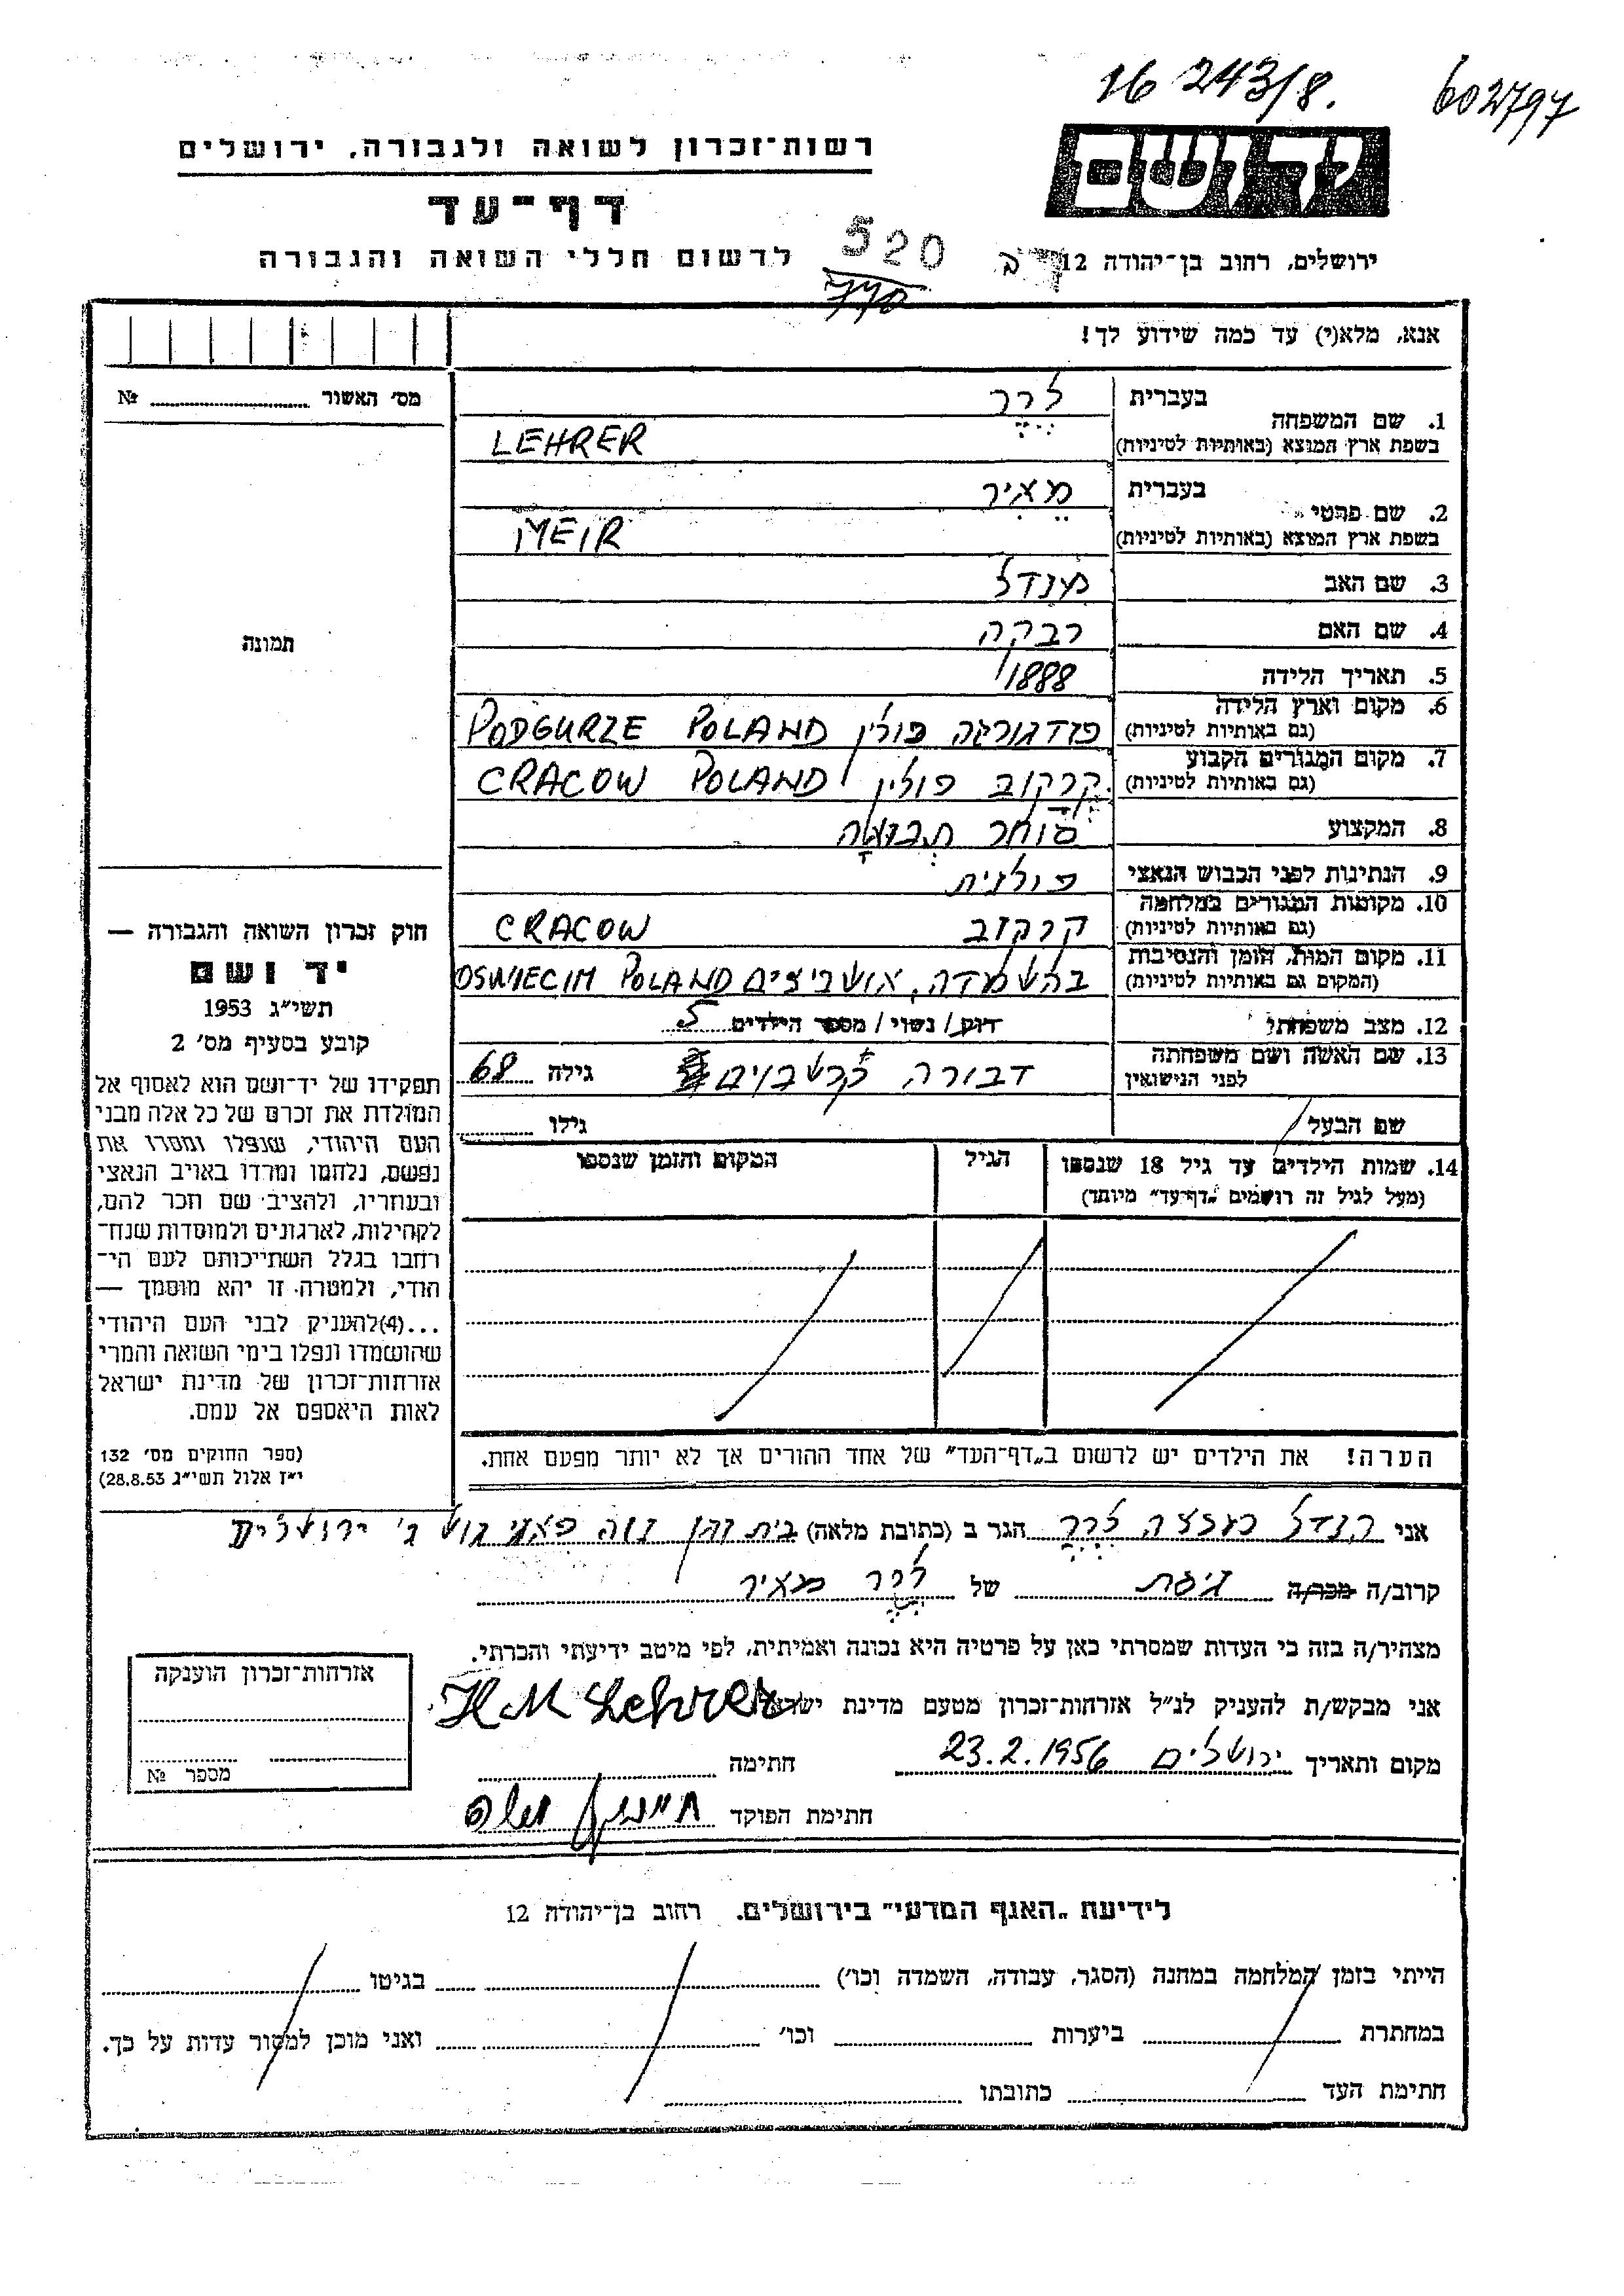 16 243/8.
602797
רשות־זכרון לשואה ולגבורה, ירושלים
ידושם
דף־עד
לרשום חללי השואה והגבורה
520
770
ירושלים, רחוב בן־יהודה 12
אנא, מלא(י) עד כמה שידוע לך!
מס׳ האשור № 
1. שם המשפחה
בעברית לרר
בשפת ארץ המוצא (באותיות לטיניות) LEHRER
2. שם פרטי
בעברית מאיר
בשפת ארץ המוצא (באותיות לטיניות) MEIR
3. שם האב מנדל
4. שם האם רבקה
5. תאריך הלידה 1888
6. מקום וארץ הלידה (גם באותיות לטיניות) פודגורזה פולין PODGURZE POLAND
7. מקום המגורים הקבוע (גם באותיות לטיניות) קרקוב פולין CRACOW POLAND
8. המקצוע סוחר תבואה
9. הנתינות לפני הכבוש הנאצי פולנית
10. מקומות המגורים במלחמה (גם באותיות לטיניות) קרקוב CRACOW
11. מקום המות, הזמן והנסיבות (המקום גם באותיות לטיניות) בהשמדה, אושביצים OSWIECIM POLAND
12. מצב משפחתי רוק/ נשוי/ מספר הילדים 5
13. שם האשה ושם משפחתה לפני הנישואין דבורה גילה 68
שם הבעל גילו
14. שמות הילדים עד גיל 18 שנספו הגיל המקום והזמן שנספו
(מעל לגיל זה רושמים „דף־עד״ מיוחד)
הערה! את הילדים יש לרשום ב„דף־העד״ של אחד ההורים אך לא יותר מפעם אחת.
תמונה
חוק זכרון השואה והגבורה —
יד ושם
תשי״ג 1953
קובע בסעיף מס׳ 2
תפקידו של יד־ושם הוא לאסוף אל
המולדת את זכרם של כל אלה מבני
העם היהודי, שנפלו ומסרו את
נפשם, נלחמו ומרדו באויב הנאצי
ובעוזריו, ולהציב שם וזכר להם,
לקהילות, לארגונים ולמוסדות שנח־
רבו בגלל השתייכותם לעם הי־
הודי, ולמטרה זו יהא מוסמך —
...(4)להעניק לבני העם היהודי
שהושמדו ונפלו בימי השואה והמרי
אזרחות־זכרון של מדינת ישראל
לאות היאספם אל עמם.
(ספר החוקים מס׳ 132
י״ז אלול תשי״ג 28.8.53)
אני לרר הגר ב (כתובת מלאה) בית וגן ירושלים
קרוב/ה מכר/ה גיסת של לרר מאיר
מצהיר/ה בזה כי העדות שמסרתי כאן על פרטיה היא נכונה ואמיתית, לפי מיטב ידיעתי והכרתי.
אני מבקש/ת להעניק לנ״ל אזרחות־זכרון מטעם מדינת ישראל
H M Lehrer
מקום ותאריך ירושלים 23.2.1956 חתימה
חתימת הפוקד
אזרחות־זכרון הוענקה
מספר №
לידיעת „האגף המדעי״ בירושלים. רחוב בן־יהודה 12
הייתי בזמן המלחמה במחנה (הסגר, עבודה, השמדה וכו׳) בגיטו
במחתרת ביערות וכו׳ ואני מוכן למסור עדות על כך.
חתימת העד כתובתו